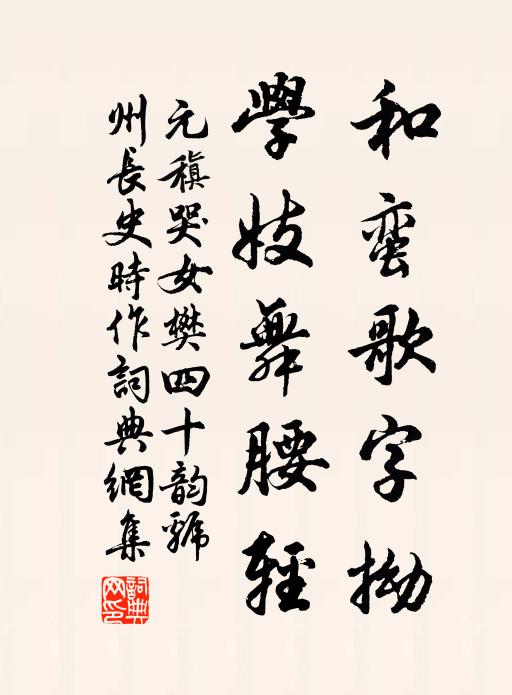 和蛮歌字拗
學妓舞腰輕
元稹哭女樊四十韵號
州長史時作詞典網集
詞典
网印